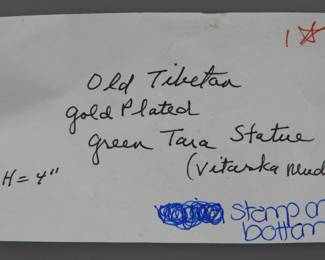 1 ☆
Old Tibetan
Gold Plated
Green Tara Statue
(Vitarska Mud
H = 4"
Stamp on
bottom